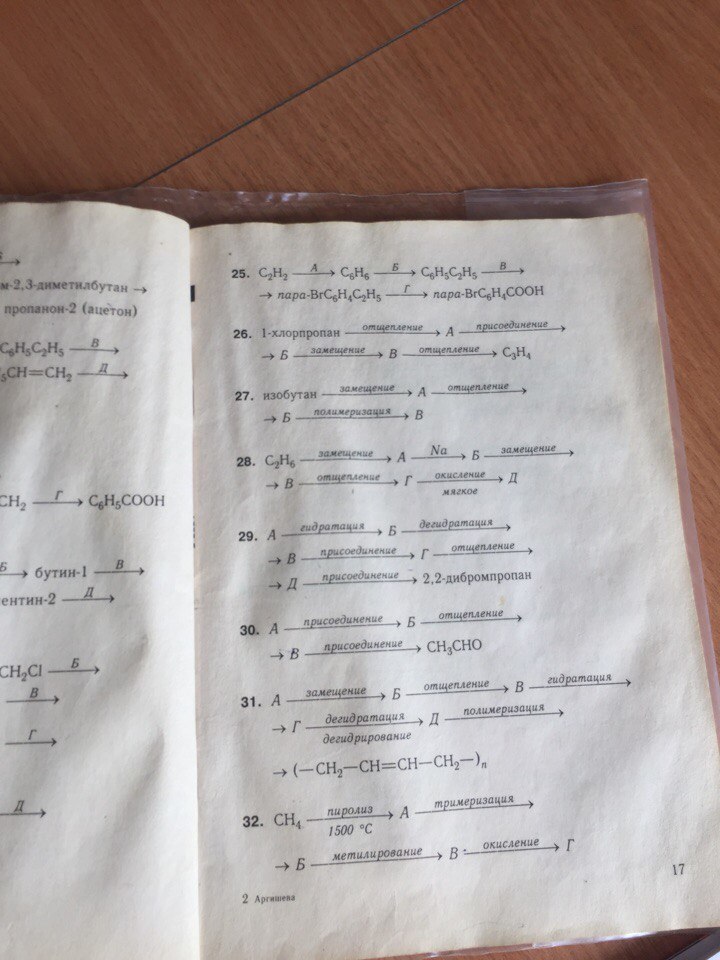 м-2,3-диметилбутан →
пропанон-2 (ацетон)
C₆H₅C₂H₅ —В→
CH=CH₂ —Д→
CH₂ —Г→ C₆H₅COOH
Б→ бутин-1 —В→
ентин-2 —Д→
CH₂Cl —Б→
В→
Г→
Д→
25. C₂H₂ —А→ C₆H₆ —Б→ C₆H₅C₂H₅ —В→
→ пара-BrC₆H₄C₂H₅ —Г→ пара-BrC₆H₄COOH
26. 1-хлорпропан —отщепление→ А —присоединение→
→ Б —замещение→ В —отщепление→ C₃H₄
27. изобутан —замещение→ А —отщепление→
→ Б —полимеризация→ В
28. C₂H₆ —замещение→ А —Na→ Б —замещение→
→ В —отщепление→ Г —окисление→ Д
мягкое
29. А —гидратация→ Б —дегидратация→
→ В —присоединение→ Г —отщепление→
→ Д —присоединение→ 2,2-дибромпропан
30. А —присоединение→ Б —отщепление→
→ В —присоединение→ CH₃CHO
31. А —замещение→ Б —отщепление→ В —гидратация→
→ Г —дегидратация→ Д —полимеризация→
дегидрирование
→ (—CH₂—CH=CH—CH₂—)ₙ
32. CH₄ —пиролиз→ А —тримеризация→
1500 °C
→ Б —метилирование→ В —окисление→ Г
2 Аргишева
17